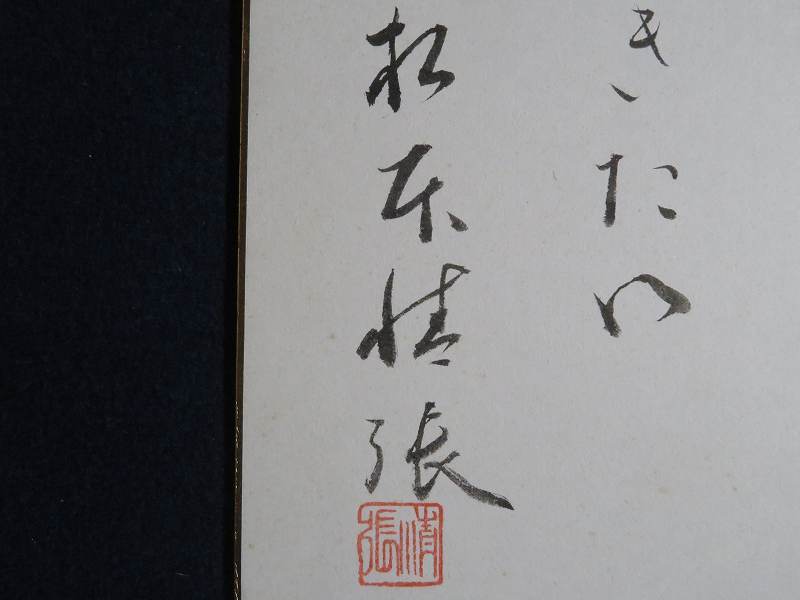 きたい
松本清張
清張